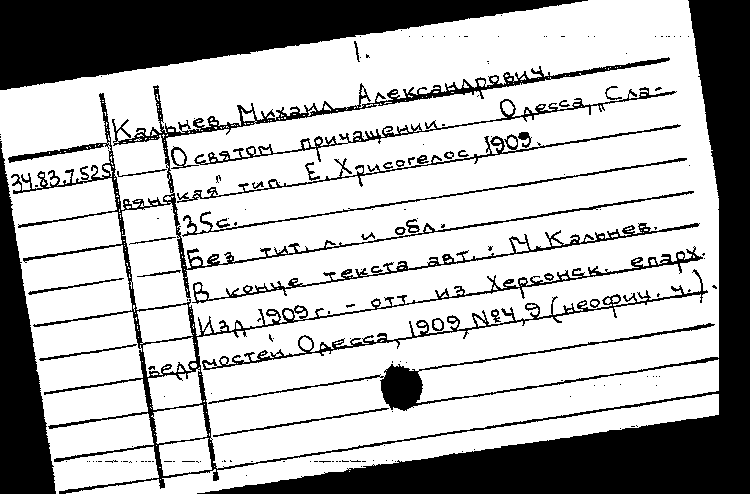 1.
Кальнев, Михаил Александрович.
34.83.7.525. О святом причащении. Одесса, „Сла-
вянская" тип. Е. Хрисогелос, 1909.
35с.
Без тит. л. и обл.
В конце текста авт.: М. Кальнев.
Изд. 1909 г. - отт. из Херсонск. епарх.
ведомостей. Одесса, 1909, №4, 9 (неофиц. ч.).